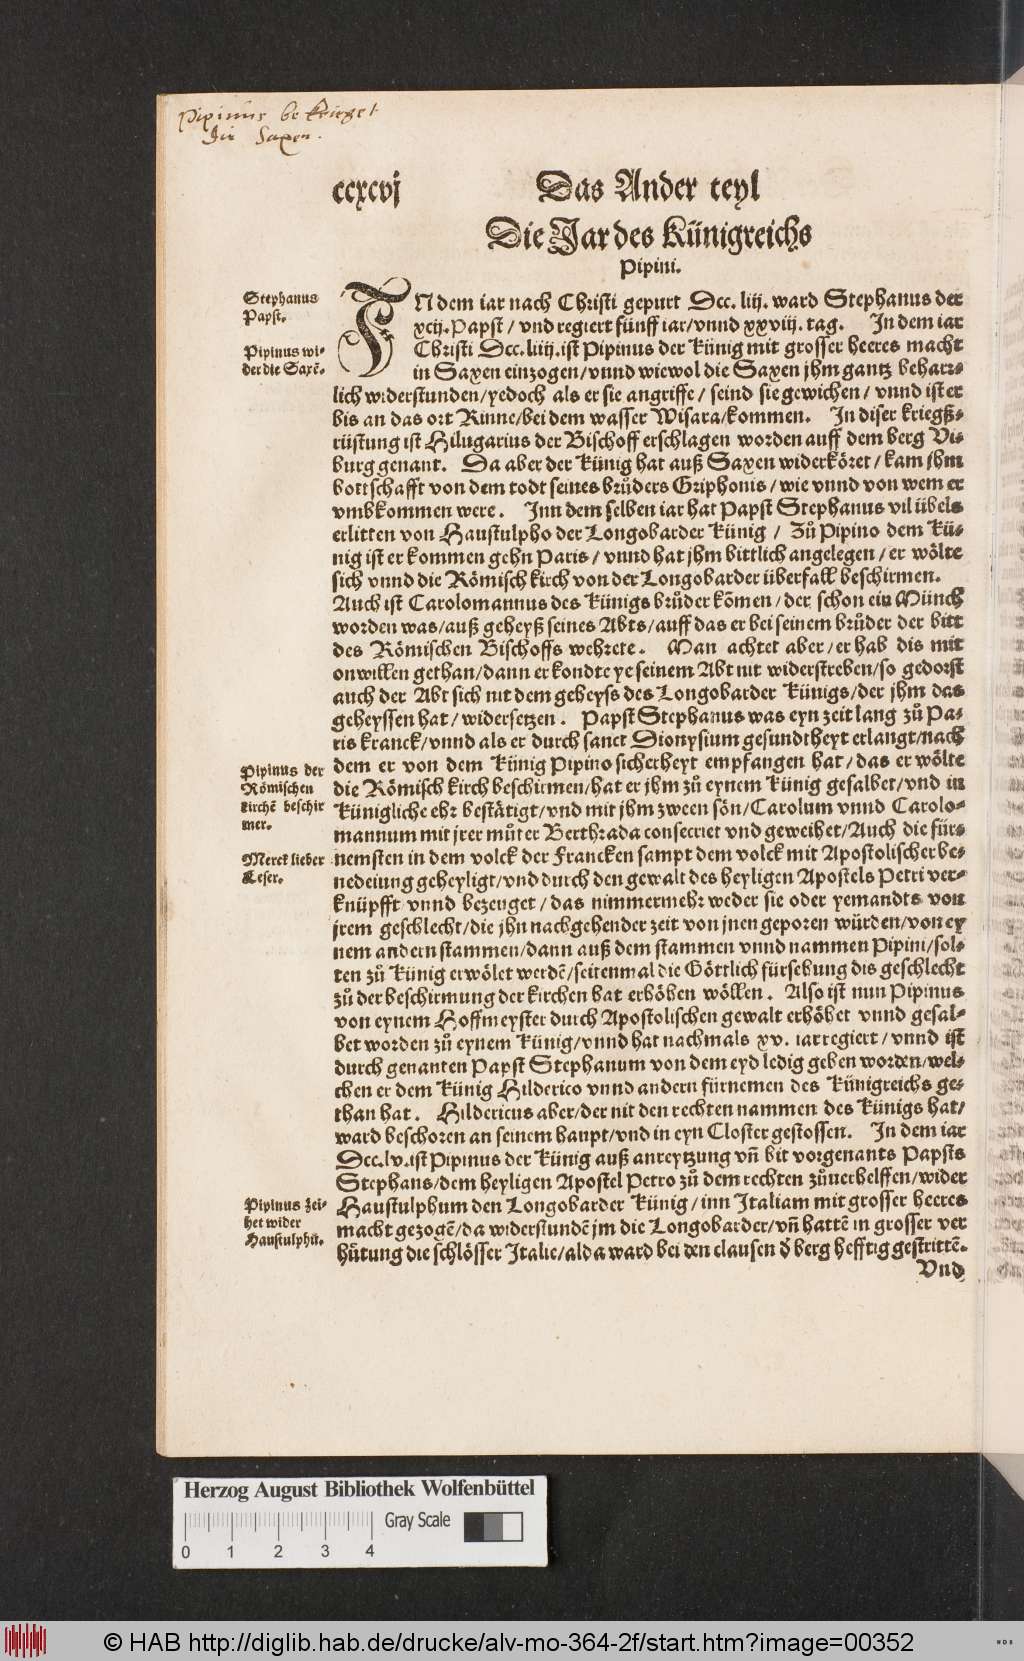 Pipinus bekrieget
die Saxen.
ccxcvj
Das Ander teyl
Die Jar des Künigreichs
Pipini.
Stephanus
Papst.
Pipinus wi-
der die Saxē.
IN dem iar nach Christi gepurt Dcc. liij. ward Stephanus der
xcij. Papst / vnd regiert fünff iar / vnnd xxviij. tag. In dem iar
Christi Dcc. liiij. ist Pipinus der Künig mit grosser heeres macht
in Saxen einzogen / vnnd wiewol die Saxen jhm gantz beharr-
lich widerstunden / yedoch als er sie angriffe / seind sie gewichen / vnnd ist er
bis an das ort Rinne / bei dem wasser Wisara / kommen. In diser kriegß-
rüstung ist Hilugarius der Bischoff erschlagen worden auff dem berg Vi-
burg genant. Da aber der Künig hat auß Saxen widerköret / kam jhm
bottschafft von dem todt seines brůders Griphonis / wie vnnd von wem er
vmbkommen were. Inn dem selben iar hat Papst Stephanus vil übels
erlitten von Haustulpho der Longobarder Künig / Zů Pipino dem Kü-
nig ist er kommen gehn Paris / vnnd hat jhm bittlich angelegen / er wölte
sich vnnd die Römisch kirch von der Longobarder überfall beschirmen.
Auch ist Carolomannus des Künigs brůder kōmen / der schon ein Münch
worden was / auß geheyß seines Abts / auff das er bei seinem brůder der bitt
des Römischen Bischoffs wehrete. Man achtet aber / er hab dis mit
onwillen gethan / dann er kondte ye seinem Abt nit widerstreben / so gedorst
auch der Abt sich nit dem geheyss des Longobarder Künigs / der jhm das
geheyssen hat / widersetzen. Papst Stephanus was eyn zeit lang zů Pa-
ris kranck / vnnd als er durch sanct Dionysium gesundtheyt erlangt / nach
dem er von dem Künig Pipino sicherheyt empfangen hat / das er wölte
die Römisch kirch beschirmen / hat er jhm zů eynem Künig gesalbet / vnd in
Künigliche ehr bestätigt / vnd mit jhm zween sön / Carolum vnnd Carolo-
mannum mit jrer můter Berthrada consecriet vnd geweihet / Auch die für-
nemsten in dem volck der Francken sampt dem volck mit Apostolischer be-
nedeiung geheyligt / vnd durch den gewalt des heyligen Apostels Petri ver-
knüpfft vnnd bezeuget / das nimmermehr weder sie oder yemandts von
jrem geschlecht / die jhn nachgehender zeit von jnen geporen würden / von ey
nem andern stammen / dann auß dem stammen vnnd nammen Pipini / sol-
ten zů Künig erwölet werdē / seitenmal die Göttlich fürsehung dis geschlecht
zů der beschirmung der kirchen hat erhöben wöllen. Also ist nun Pipinus
von eynem Hoffmeyster durch Apostolischen gewalt erhöbet vnnd gesal-
bet worden zů eynem Künig / vnnd hat nachmals xv. iar regiert / vnnd ist
durch genanten Papst Stephanum von dem eyd ledig geben worden / wel-
chen er dem Künig Hilderico vnnd andern fürnemen des Künigreichs ge-
than hat. Hildericus aber / der nit den rechten nammen des Künigs hat /
ward beschoren an seinem haupt / vnd in eyn Closter gestossen. In dem iar
Dcc. lv. ist Pipinus der Künig auß anreytzung vñ bit vorgenants Papsts
Stephans / dem heyligen Apostel Petro zů dem rechten zůverhelffen / wider
Haustulphum den Longobarder Künig / inn Italiam mit grosser heeres
macht gezogē / da widerstundē jm die Longobarder / vñ hattē in grosser ver
hůtung die schlösser Italie / alda ward bei den clausen d̄ berg hefftig gestrittē.
Vnd
Pipinus der
Römischen
kirchē beschir
mer.
Merck lieber
Leser.
Pipinus zei-
het wider
Haustulphū.
Herzog August Bibliothek Wolfenbüttel
Gray Scale
0 1 2 3 4
© HAB http://diglib.hab.de/drucke/alv-mo-364-2f/start.htm?image=00352